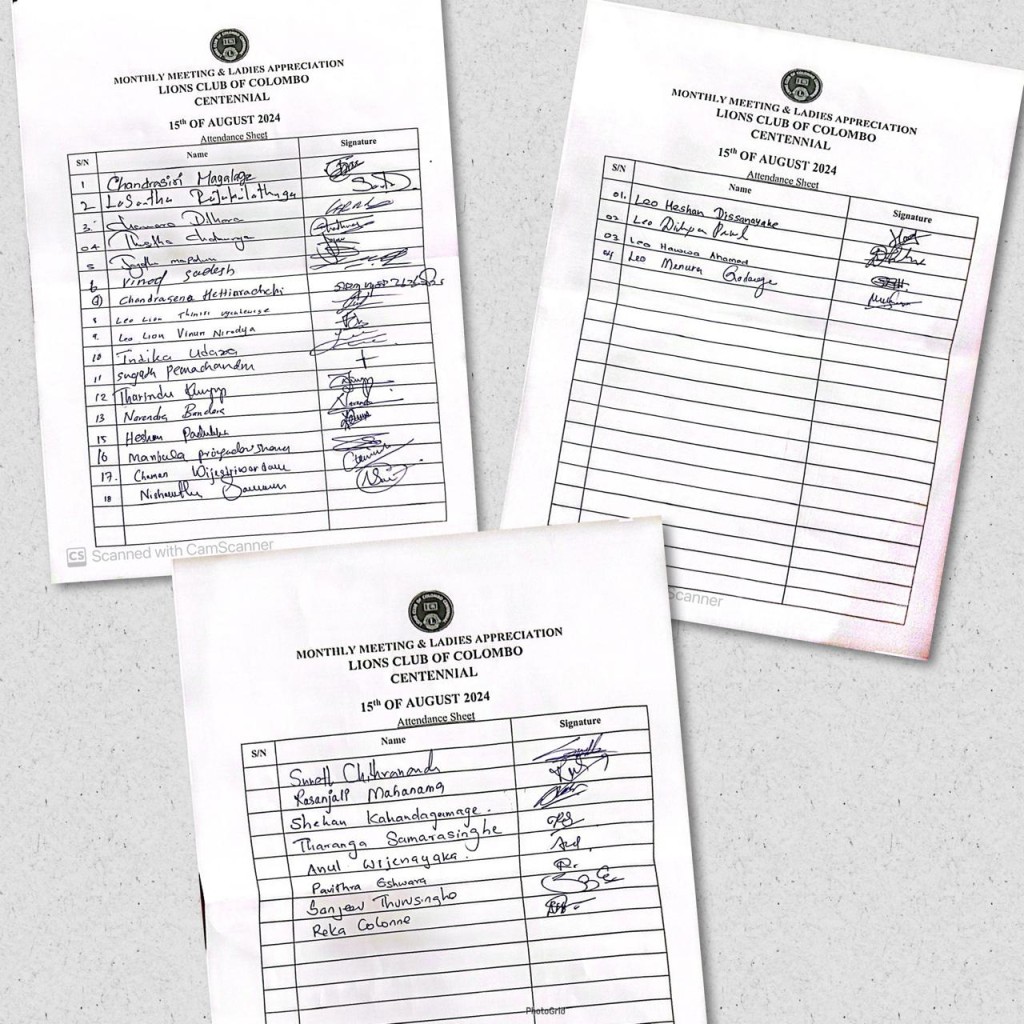 MONTHLY MEETING & LADIES APPRECIATION
LIONS CLUB OF COLOMBO
CENTENNIAL
15th OF AUGUST 2024
Attendance Sheet
S/N Name Signature
1 Chandrasiri Magalage
2 Lasantha
3 Dilhara
04
5
6 Vinod Sadesh
Chandrasena Hettiarachchi
8 Leo Lion Thimiri
9. Leo Lion Vinun Nirodya
10 Indika Udara
11 Sugath Pemachandra
12 Tharindu
13 Narendra Bandara
15 Heshan
16 Manjula
17. Chaman Wijesiriwardane
18
CS Scanned with CamScanner
MONTHLY MEETING & LADIES APPRECIATION
LIONS CLUB OF COLOMBO
CENTENNIAL
15th OF AUGUST 2024
Attendance Sheet
S/N Name Signature
01. Leo Heshan Dissanayake
02 Leo
03 Leo Ahamed
04 Leo Menura Godage
Scanner
MONTHLY MEETING & LADIES APPRECIATION
LIONS CLUB OF COLOMBO
CENTENNIAL
15th OF AUGUST 2024
Attendance Sheet
S/N Name Signature
Sunell Chithrananda
Rasanjali Mahanama
Shehan Kahandagamage.
Tharanga Samarasinghe
Anul Wijenayaka.
Pavithra Eshwara
Sanjeev Thuvsingho
Reka Colonne
PhotoGrid